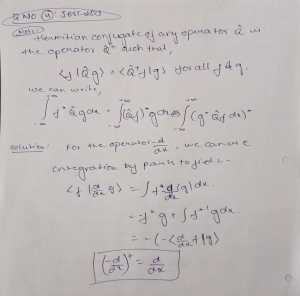 Q NO (4): JEST-2017
Note:
Hermitian conjugate of any operator Q̂ is
the operator Q̂† such that,
⟨f|Q̂g⟩ = ⟨Q̂†f|g⟩ for all f & g.
we can write,
∫ f* Q̂g dx = ∫ (Q̂f)* g dx ∫ (g* Q̂f dx)*
Solution: For the operator -d/dx, we can use
integration by parts to find:-
⟨f| d/dx g⟩ = ∫ f* d/dx (g) dx
= -f* g + ∫ f*' g dx
= -(-⟨d/dx f|g⟩
(-d/dx)† = d/dx